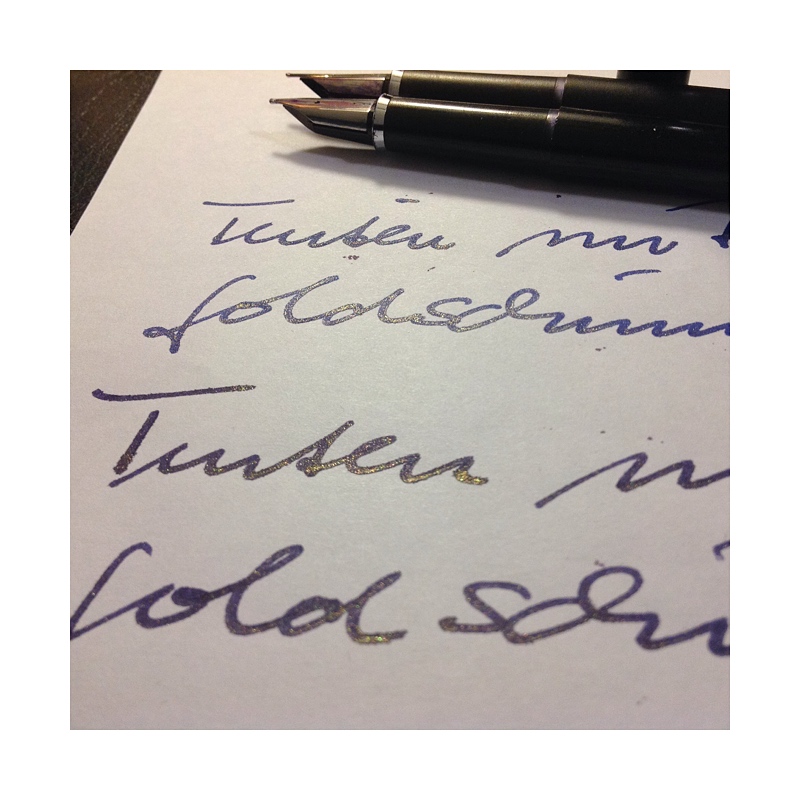 Tinten mit
Goldschimm
Tinten m
Gold schi